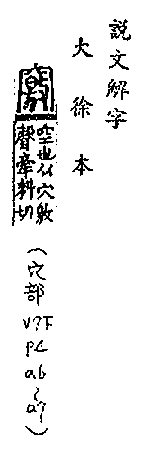 説文解字
大徐本
竅
空也从穴敫
聲牽料切
(穴部
V7下
a6~a7)